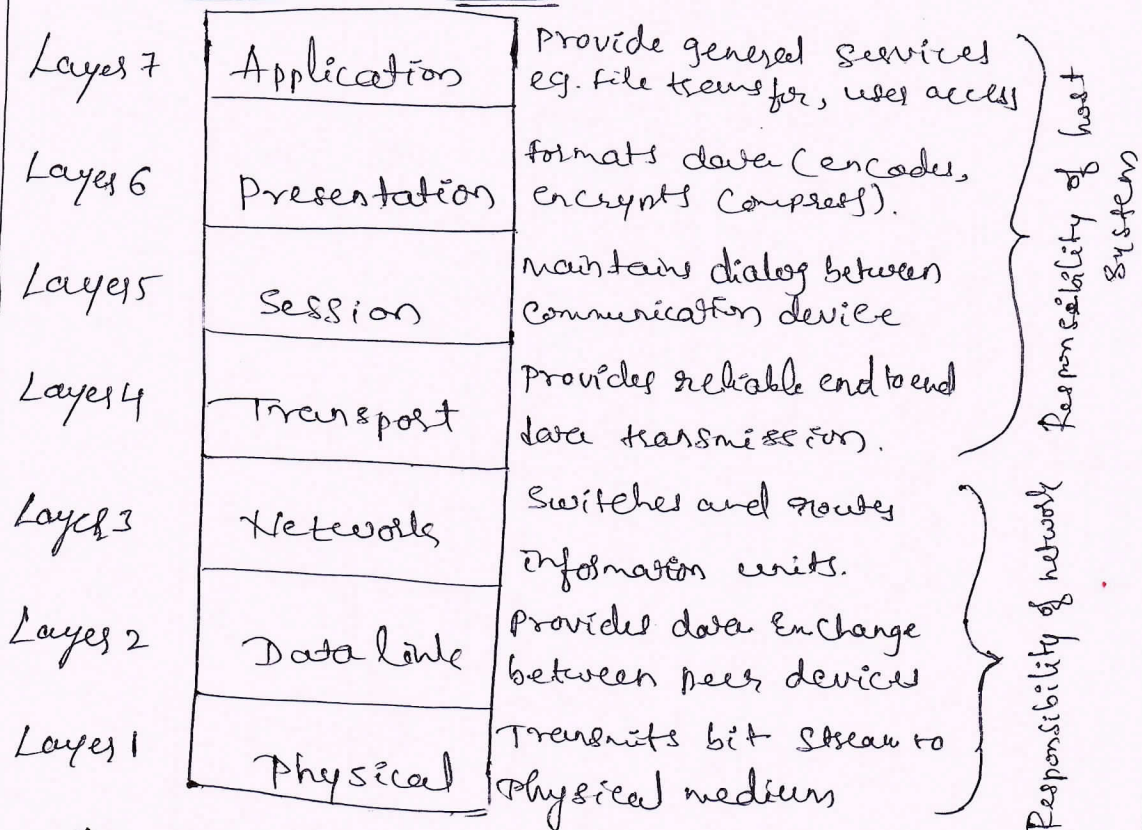 Layer 7
Application
Provide general services
eg. File transfer, user access
Layer 6
Presentation
formats data (encodes,
encrypts compress).
Layer 5
Session
maintains dialog between
communication device
Layer 4
Transport
Provides reliable end to end
data transmission.
Layer 3
Network
Switches and routes
information units.
Layer 2
Data link
Provides data Exchange
between peer devices
Layer 1
Physical
Transmits bit stream to
Physical medium
Responsibility of host
System
Responsibility of network